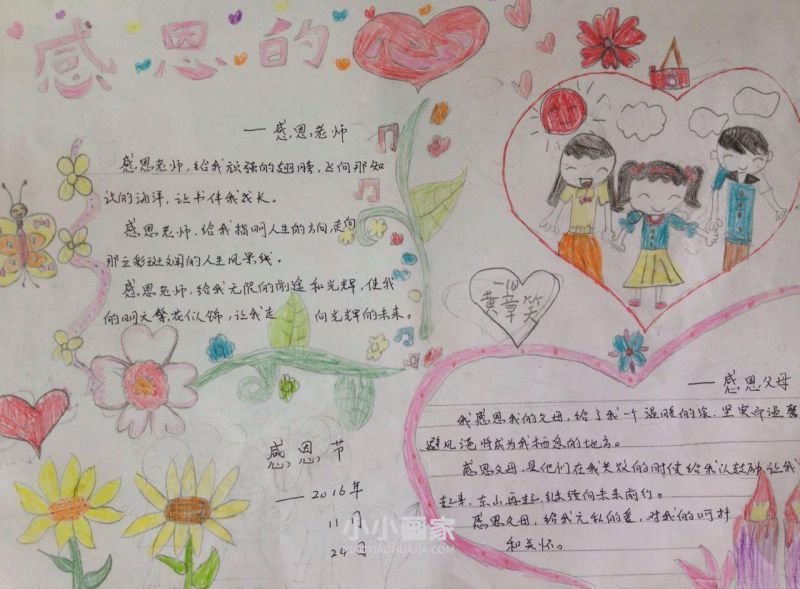 感恩的
——感恩老师
感恩老师,给我顽强的翅膀,飞向那知
识的海洋,让书伴我成长。
感恩老师,给我指明人生的方向,走向
那五彩斑斓的人生风景线。
感恩老师,给我无限的前途和光辉,使我
的明天繁花似锦,让我走向光辉的未来。
感恩节
——2016年
11月
24日
一16
黄章笑
——感恩父母
我感恩我的父母,给了我一个温暖的家,坚实而温馨
避风港将成为我栖息的地方。
感恩父母,是他们在我失败的时候给我以鼓励,让我
起来,东山再起,继续向未来前行。
感恩父母,给我无私的爱,对我的呵护
和关怀。
小小画家
XIAOXIAOHUAJIA.COM